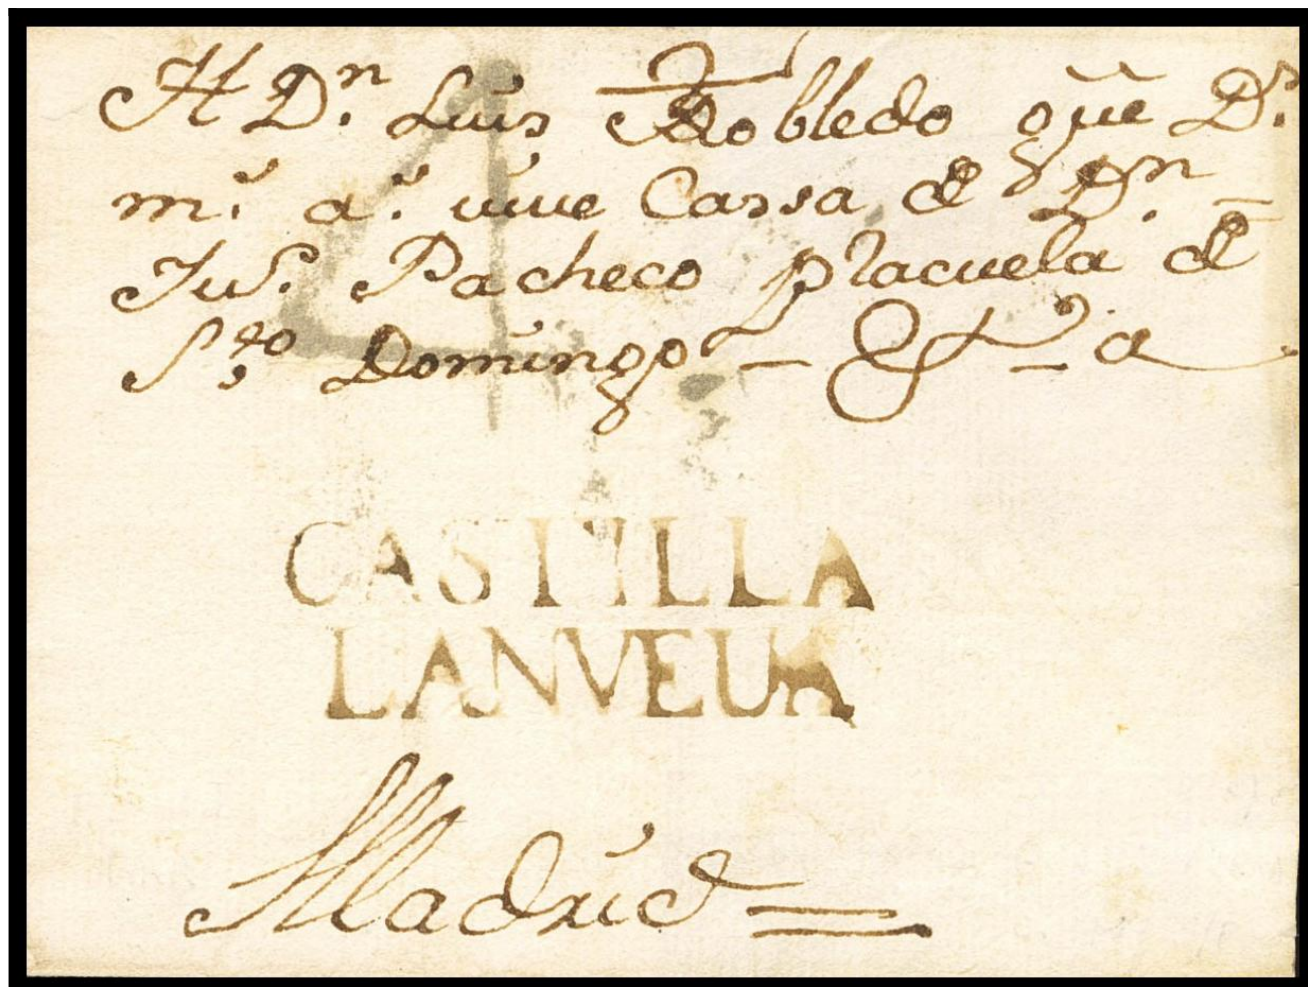 A Dn. Luis Robledo que Ds.
m. a. vive Cassa de Dn.
Ju. Pacheco placuela de
Sto. Domingo
4
CASTILLA
LANVEUA
Madrid